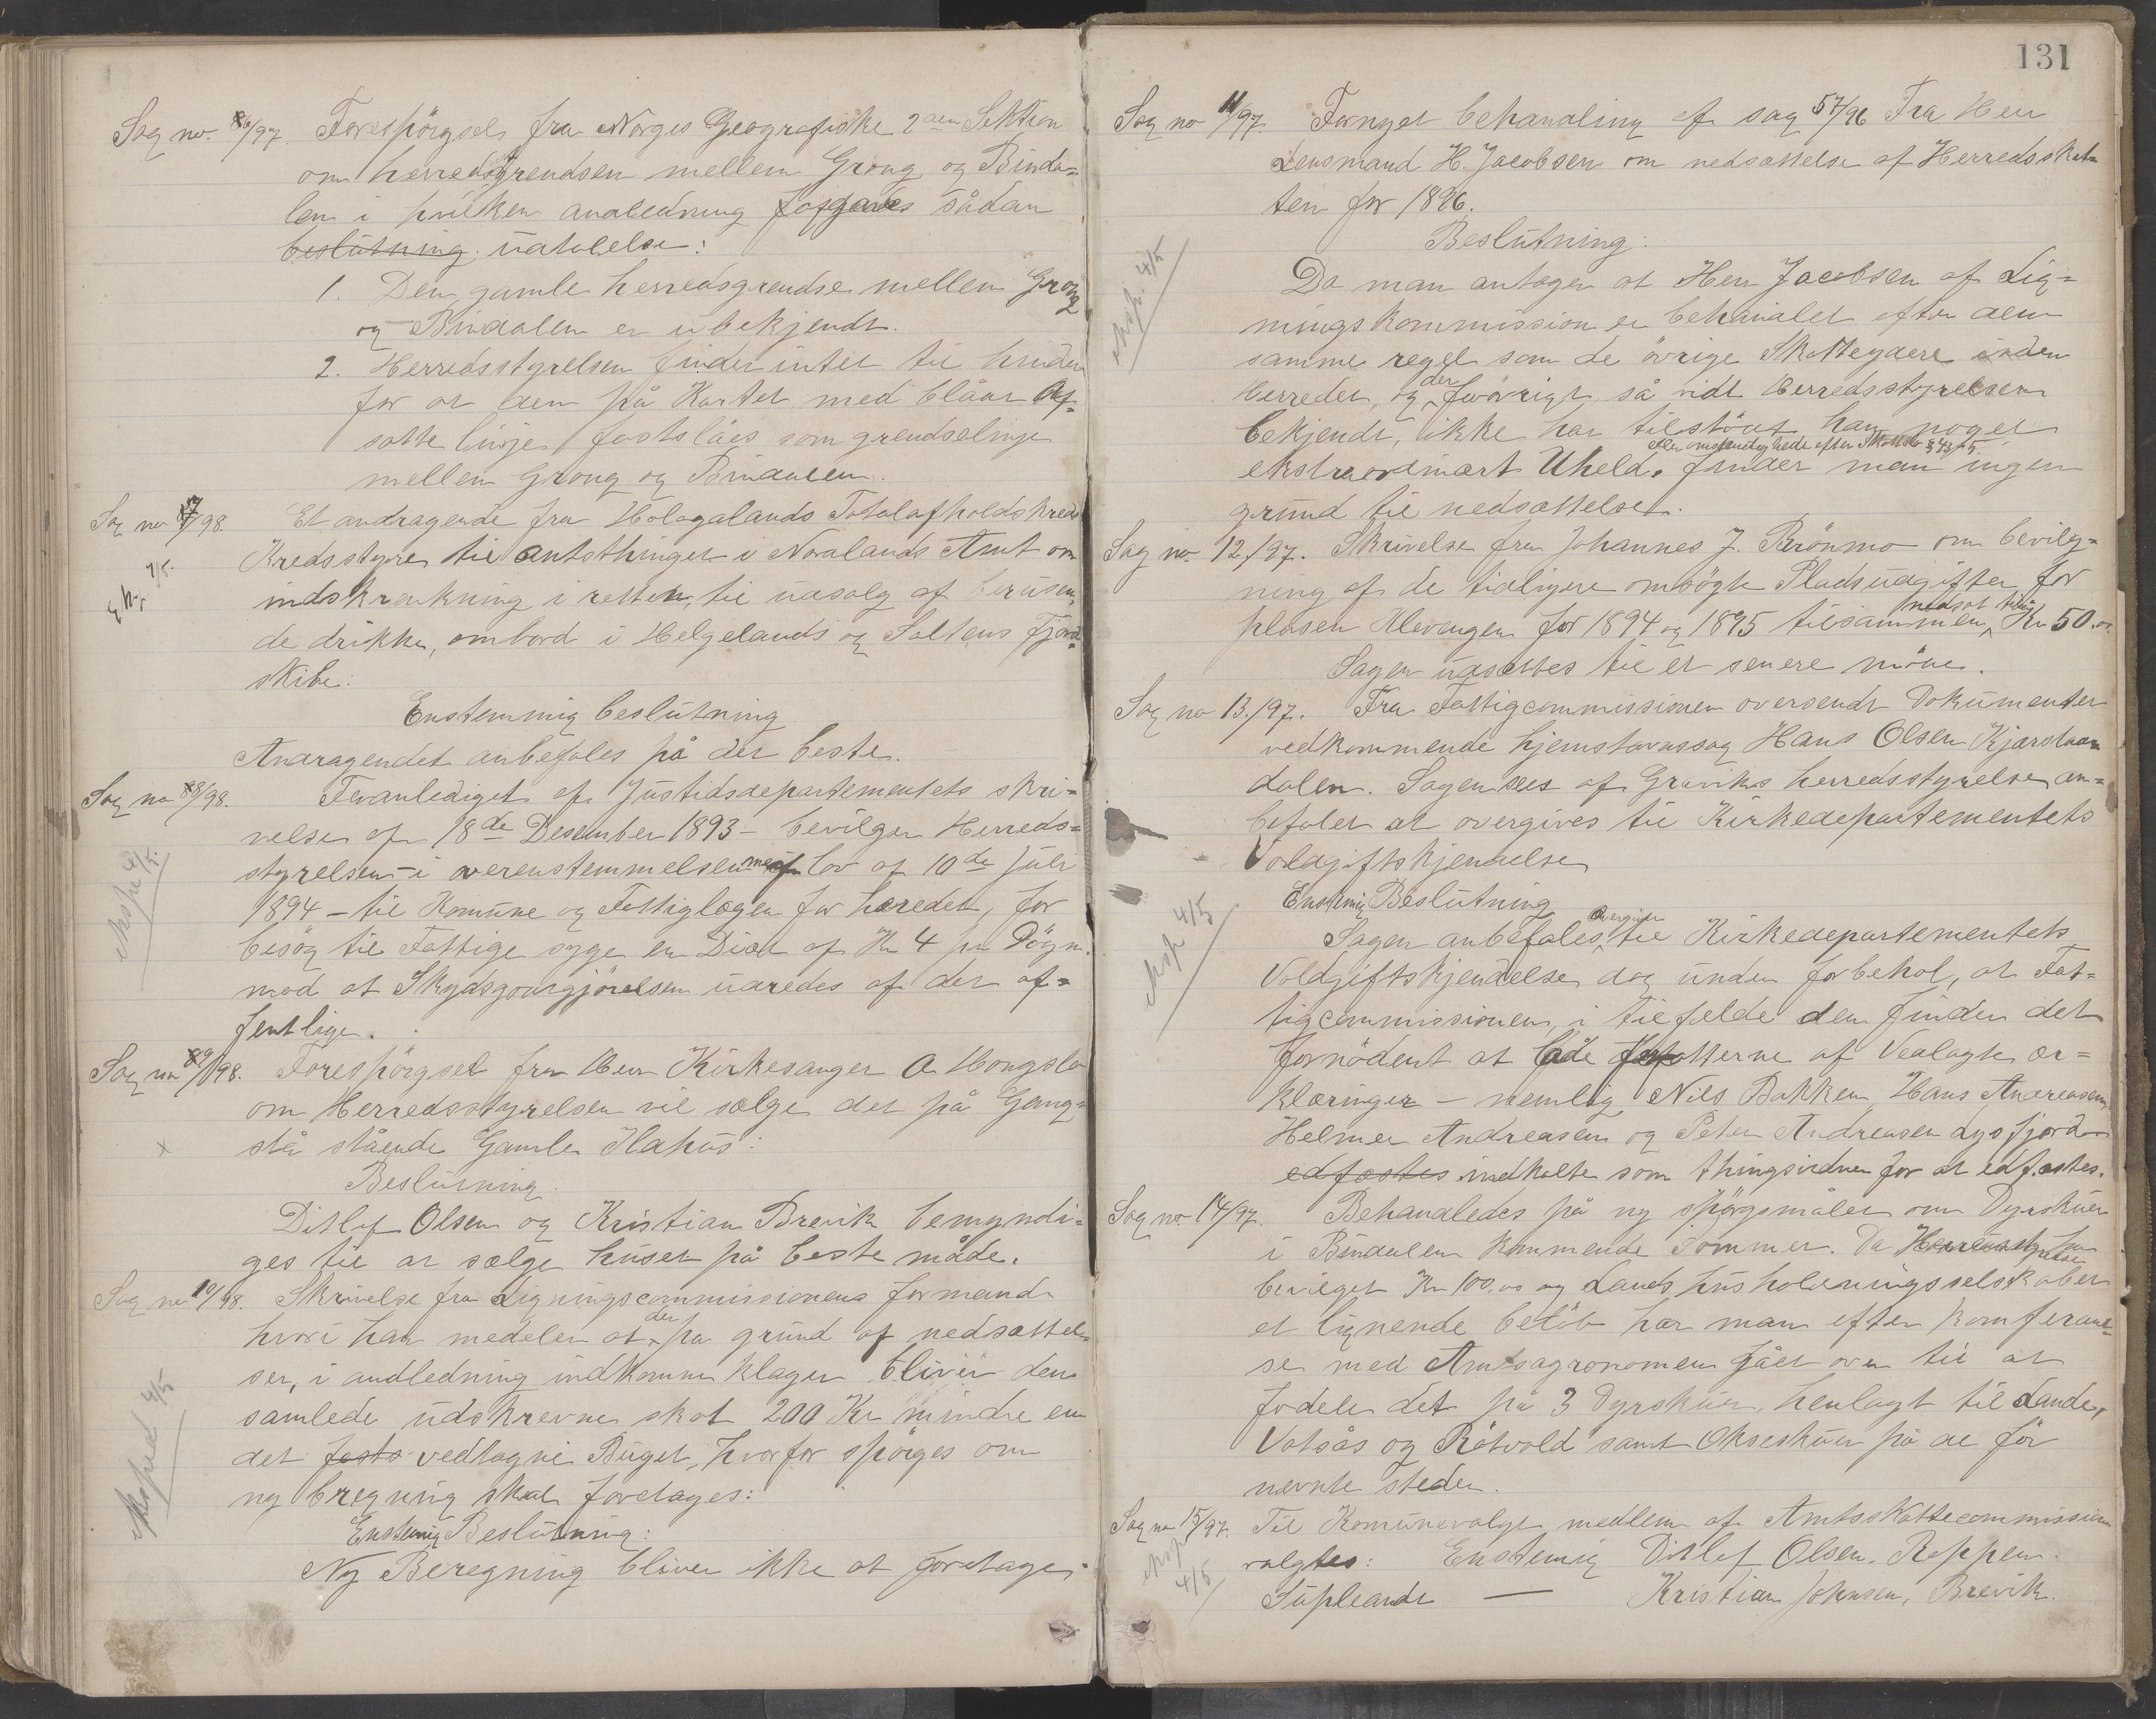 Sag no. 6/97. Forespörgsel fra Norges Geografiske 2den Sektion
om herredsgrendsen mellem Grong og Binda-
len i hvilken anledning sådan
beslutning udtalelse:
1. Den gamle herredsgrendse mellem Grong
og Bindalen er ubekjendt.
2. Herredsstyrelsen finder intet til hinder
for at den på Kartet med blåat Af-
satte linje fastslåes som grendselinje
mellem Grong og Bindalen.
Sag no 7/98. Et andragende fra Hologalands Totalafholdskreds
Exp. 4/5.
Kredsstyre til Amtsthinget i Nordlands Amt om
indskrænkning i retten til udsalg af berusen-
de drikke, ombord i Helgelands og Saltens Fjord-
skibe.
Enstemmig beslutning
Andragendet anbefales på det beste.
Sag no 8/98. Foranlediget af Justidsdepartementets skri-
velse af 18de Desember 1893 - bevilger Herreds-
styrelsen - i overenstemmelse med lov af 10de Juli
eksp. 4/5.
1894 - til Komune og Fattiglægen for heredet, for
besög til Fattige syge en Diæt af Kr 4 pr Dögn.
mod at Skydsgodtgjörelsen udredes af det of-
fentlige.
Sag no 9/98. Forespörgsel fra Herr Kirkesanger A. Hongslo
om Herredsstyrelsen vil sælge det på Gang-
x
stå stående Gamle Ilahus:
Beslutning.
Ditlef Olsen og Kristian Brevik bemyndi-
ges til at sælge huset på beste måde.
Sag no 10/98. Skrivelse fra Ligningscommissionens formand
hvori han medeler at der på grund af nedsættel-
ser, i andledning indkomne klager bliver den
eksped 4/5
samlede udskrevne skat 200 Kr mindre en
det fasts vedtagne Buget, hvorfor spörges om
ny bregning skal foretages:
Enstemig Beslutning:
Ny Beregning bliver ikke at foretage.
131
Sag no 11/97. Fornyet behandling af sag 57/96 Fra Herr
Lensmand H. Jacobsen om nedsættelse af Herredsskat-
ten for 1896.
Beslutning:
eksp. 4/5
Da man antager at Herr Jacobsen af Lig-
ningskommission er behandlet efter den
samme regel som de övrige Skatteydere inden
Herredet, og der forövrigt så vidt Herredsstyrelsen
bekjendt, ikke har tilstöat ham noget
eller omstændighede efter Skattelo § 43/45
ekstraordinært Uheld. finder man ingen
grund til nedsættelse.
Sag no. 12/97. Skrivelse fra Johannes J. Brönmo om bevilg-
ning af de tidligere omsögte Pladsudgifter for
nedsat til
pladsen Klevengen for 1894 og 1895 tilsammen Kr 50.00.
Sagen udsættes til et senere möde.
Sag no 13/97. Fra Fattigcommissionen oversendt Dokumenter
vedkommende hjemstavnssag Hans Olsen Kjærstad
dalen. Sagen sees af Gravviks herredsstyrelse an-
befalet at overgives til Kirkedepartementets
Voldgiftskjendelse
Enstemig Beslutning
eksp 4/5
Sagen anbefales overgivet til Kirkedepartementets
Voldgiftskjendelse dog under forbehol, at Fat-
tigcommissionen, i tilfelde den finder det
fornödent at lade forfatterne af Vedlagte er-
klæringer - nemlig Nils Bakken, Hans Andreasen,
Helmer Andreasen og Peter Andreasen Lysfjord
edfæstes indkalte som thingsvidner for at edfæstes.
Sag no. 14/97. Behandledes på ny spörgsmålet om Dyrskuer
i Bindalen kommende Sommer. Da Herredsstyrelse har
bevilget Kr 100.00 og Lands husholdningsselskabet
et lignende belöb har man efter komferan-
se med Amtsagronomen gået over til at
fodele det på 3 Dyrskuer, henlagt til Lande,
Vatsås og Råtvold samt Okseskuer på de för
nevnte steder.
Sag no 15/97. Til Komunevalgt medlem af Amtsskattecommission
eksp 4/5
valgtes: Enstemig Ditlef Olsen. Reppen.
Supleandt — Kristian Johnsen, Brevik.